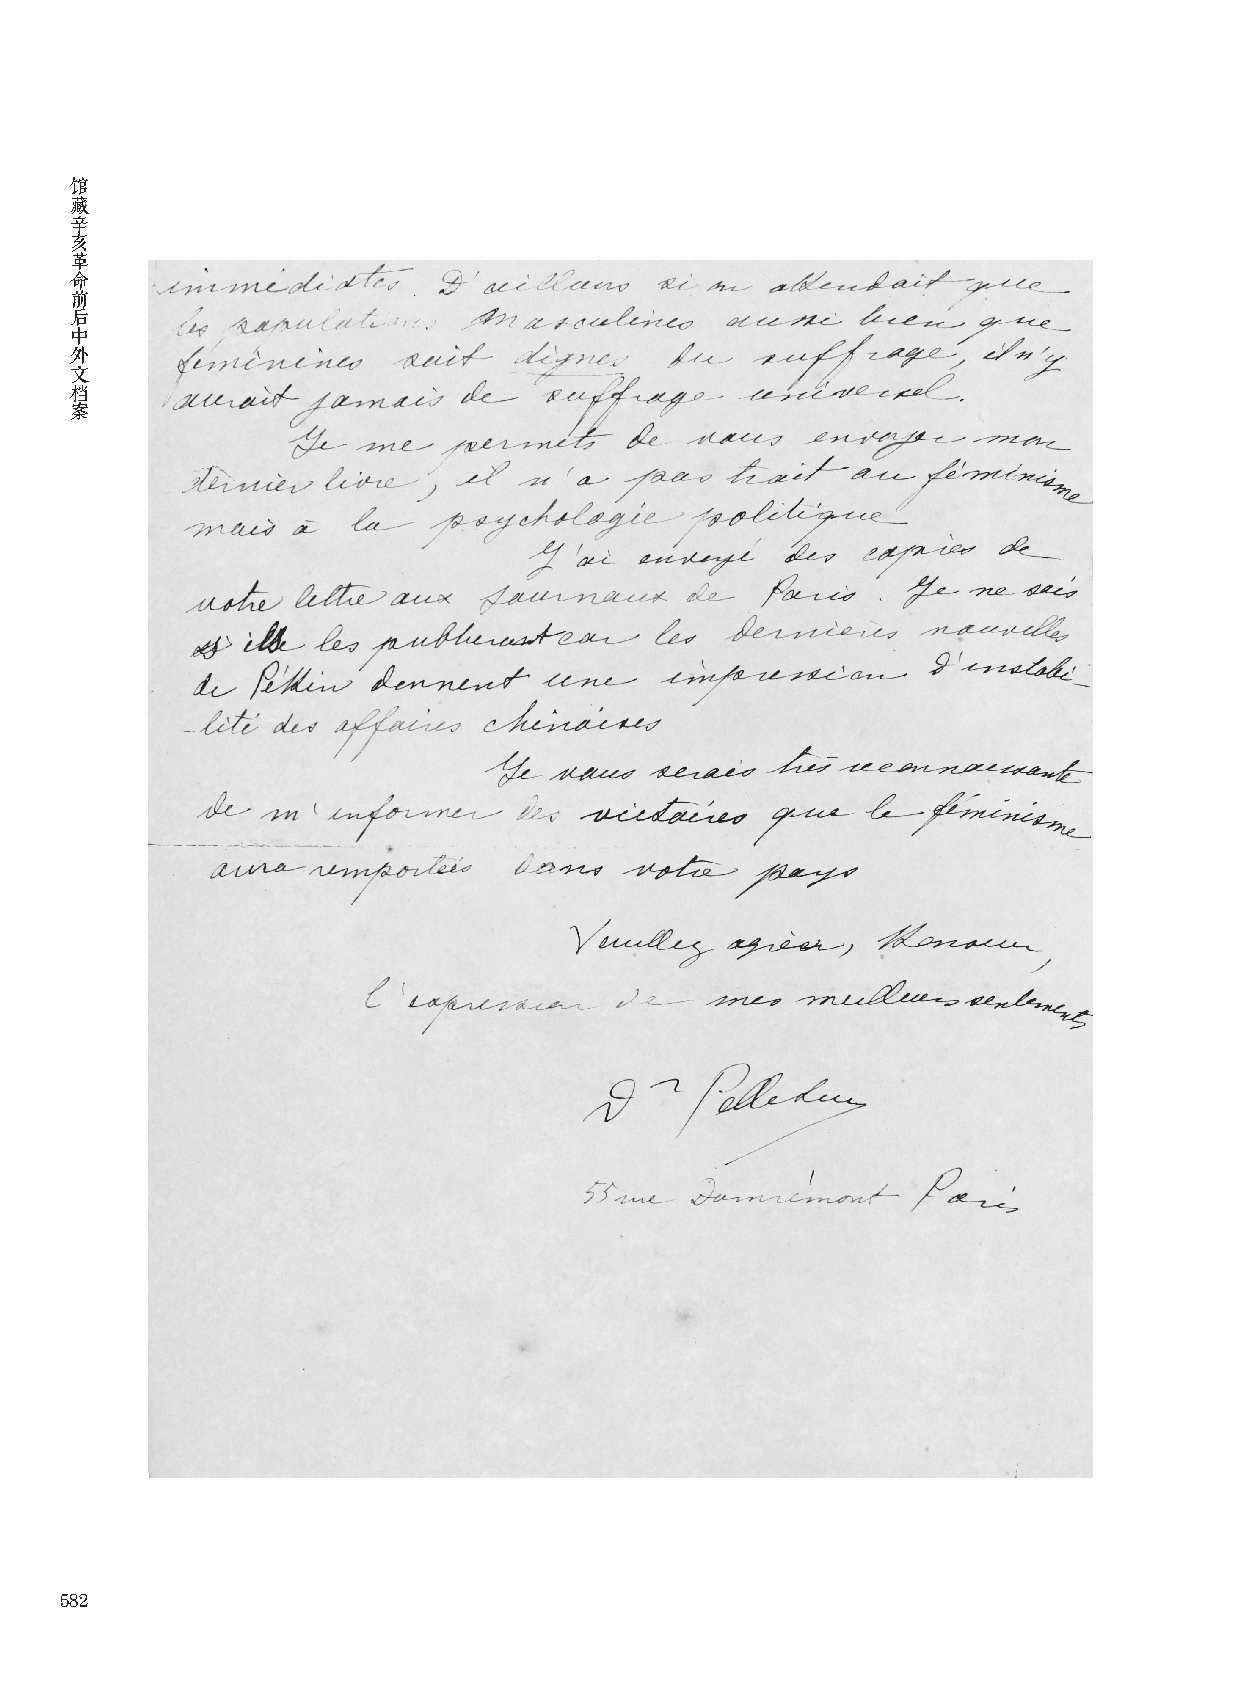 馆藏辛亥革命前后中外文档案
immédiates. D'ailleurs si on attendait que
les populations masculines aussi bien que
féminines soit dignes du suffrage, il n'y
aurait jamais de suffrage universel.
Je me permets de vous envoyer mon
dernier livre, il n'a pas trait au féminisme
mais à la psychologie politique
J'ai envoyé des copies de
votre lettre aux journaux de Paris. Je ne sais
s'ils les publieront car les dernières nouvelles
de Pékin donnent une impression d'instabi-
-lité des affaires chinoises
Je vous serais très reconnaissante
de m'informer des victoires que le féminisme
aura remportées dans votre pays
Veuillez agréer, Monsieur,
l'expression de mes meilleurs sentiments
Dr Pelletier
55 rue Damrémont Paris
582